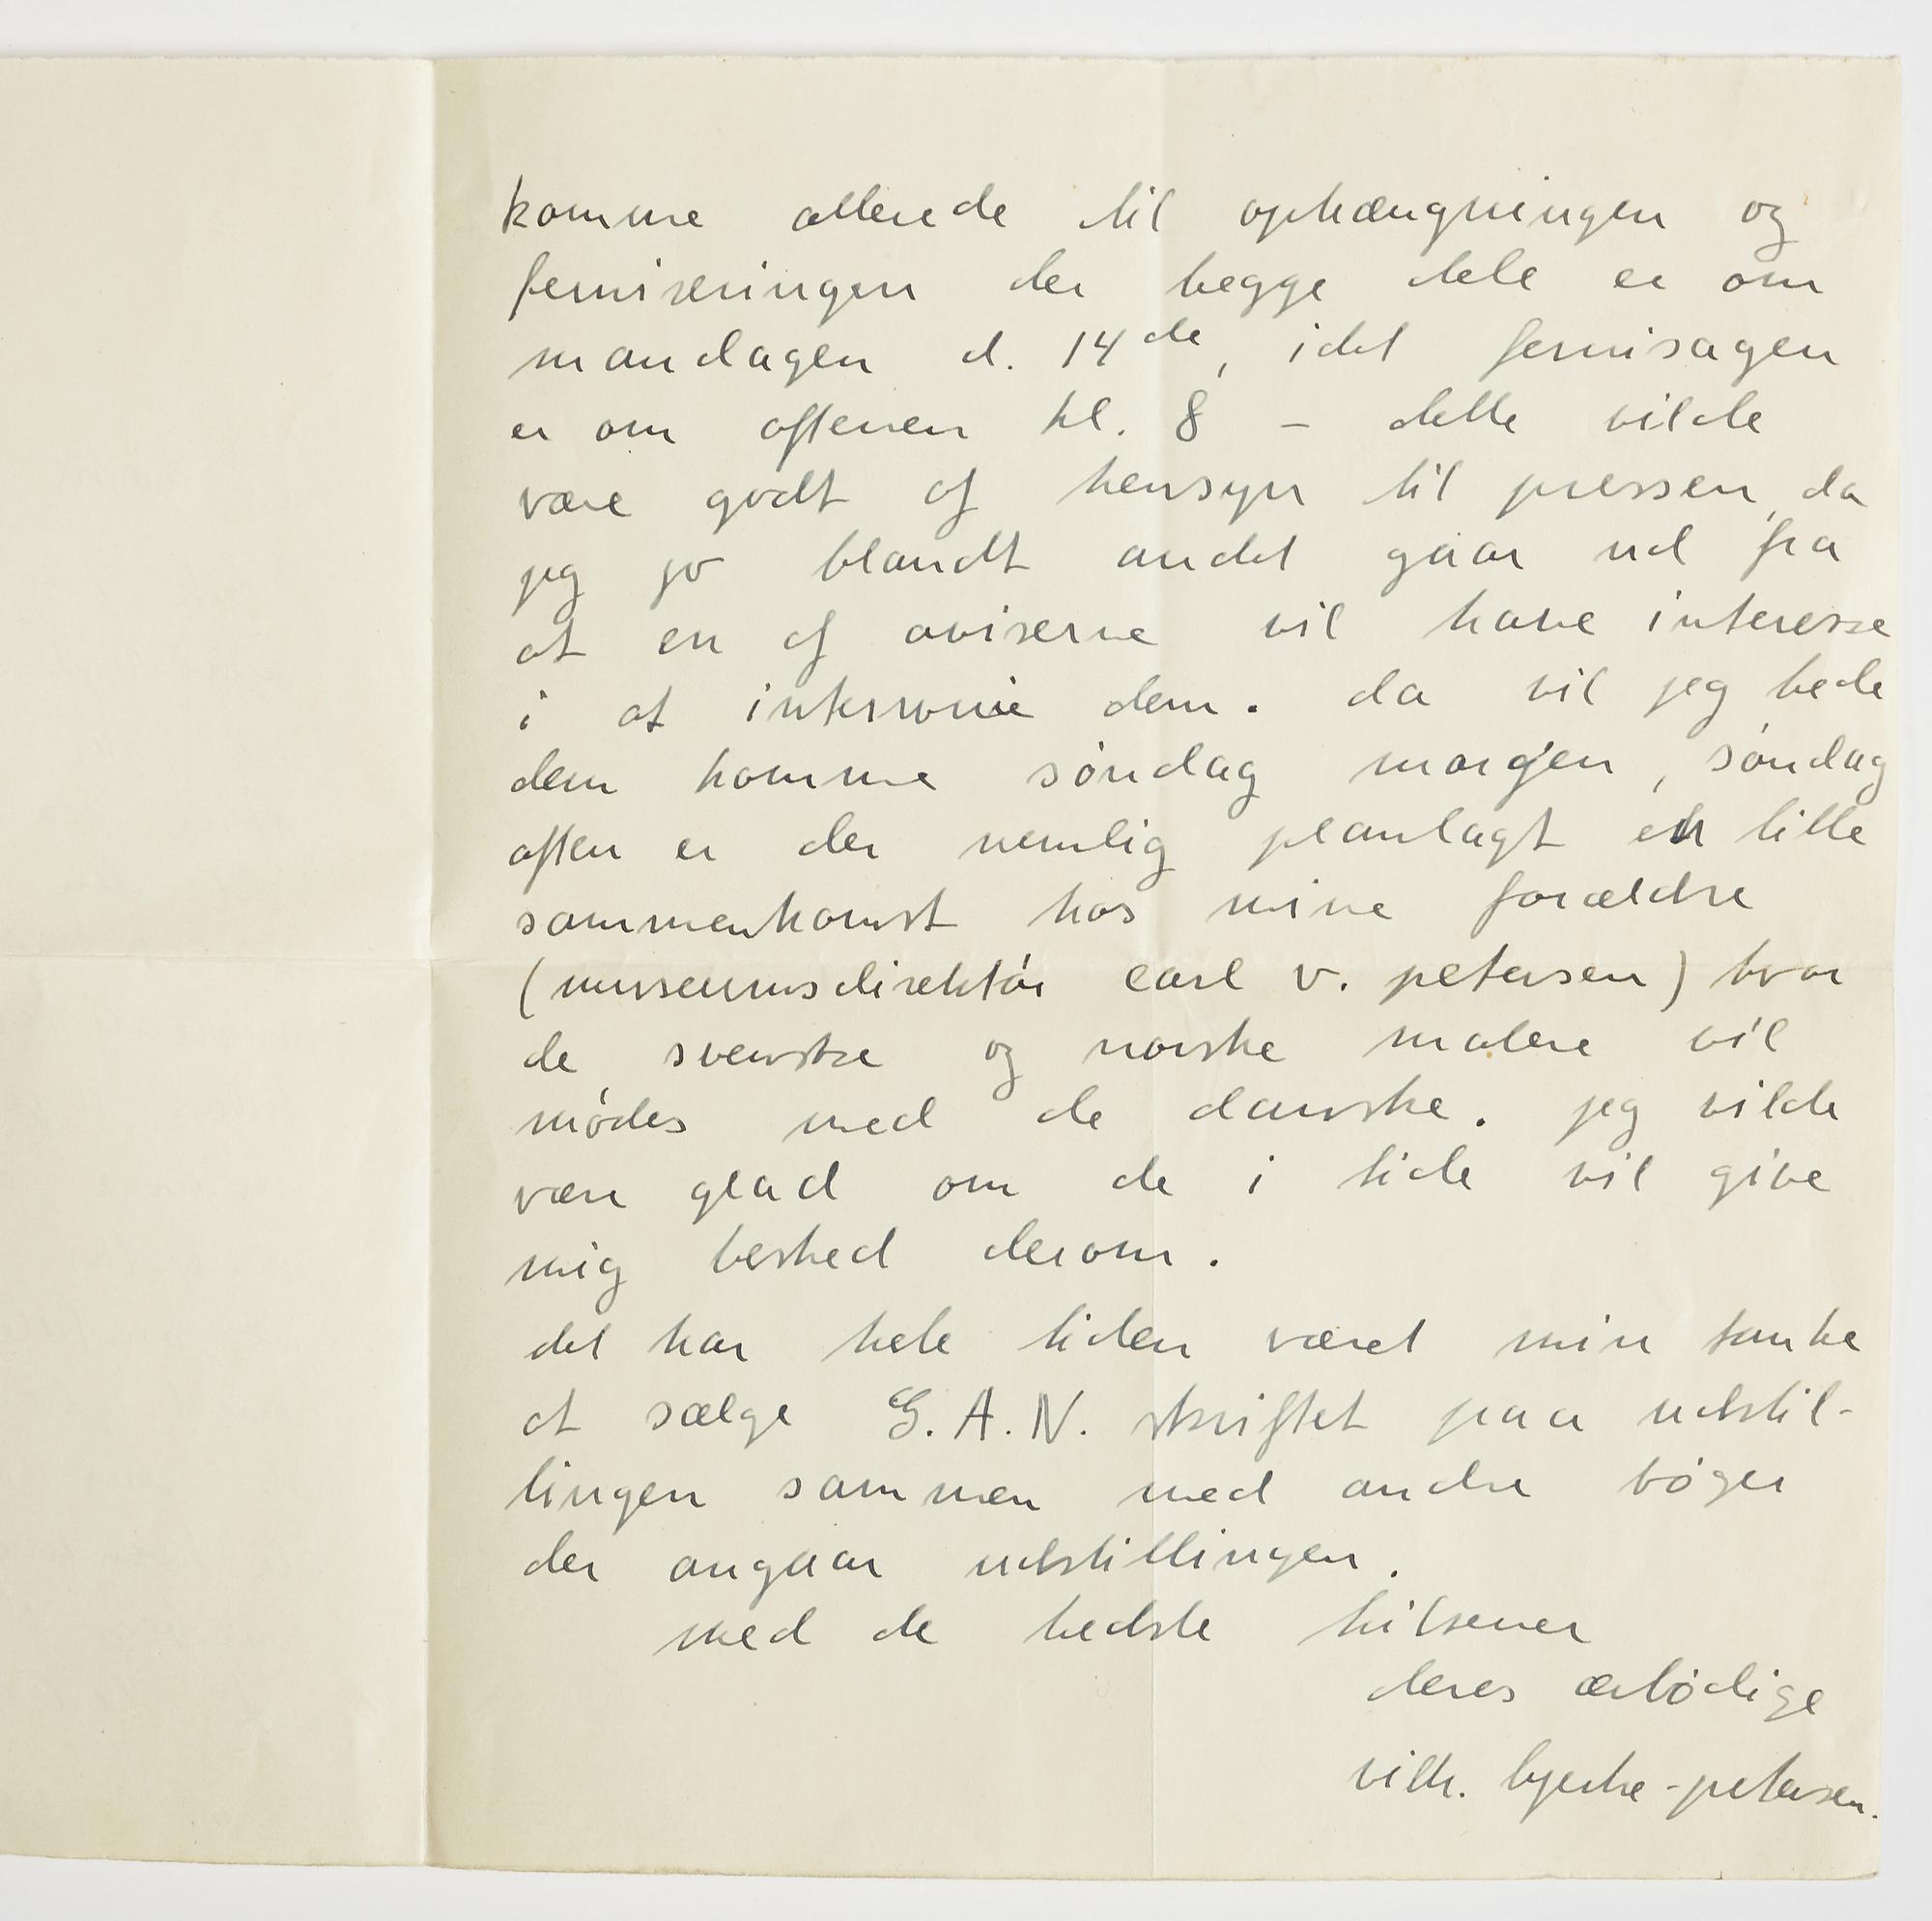 komme allerede til ophængningen og
ferniseringen der begge dele er om
mandagen d. 14de, idet fernisagen
er om aftenen kl. 8 – dette vilde
være godt af hensyn til pressen, da
jeg jo blandt andet gaar ud fra
at en af aviserne vil have interesse
i at dem. da vil jeg bede
dem komme søndag morgen, søndag
aften er der nemlig planlagt en lille
sammenkomst hos mine forældre
(museumsdirektør carl v. petersen) hvor
de svenske og norske malere vil
mødes med de danske. jeg vilde
være glad om de i tide vil give
mig besked derom.
det har hele tiden været min tanke
at sælge G.A.N. skriftet paa udstil-
lingen sammen med andre bøger
der angaar udstillingen.
med de bedste hilsener
deres ærbødige
vilh. bjerke-petersen.